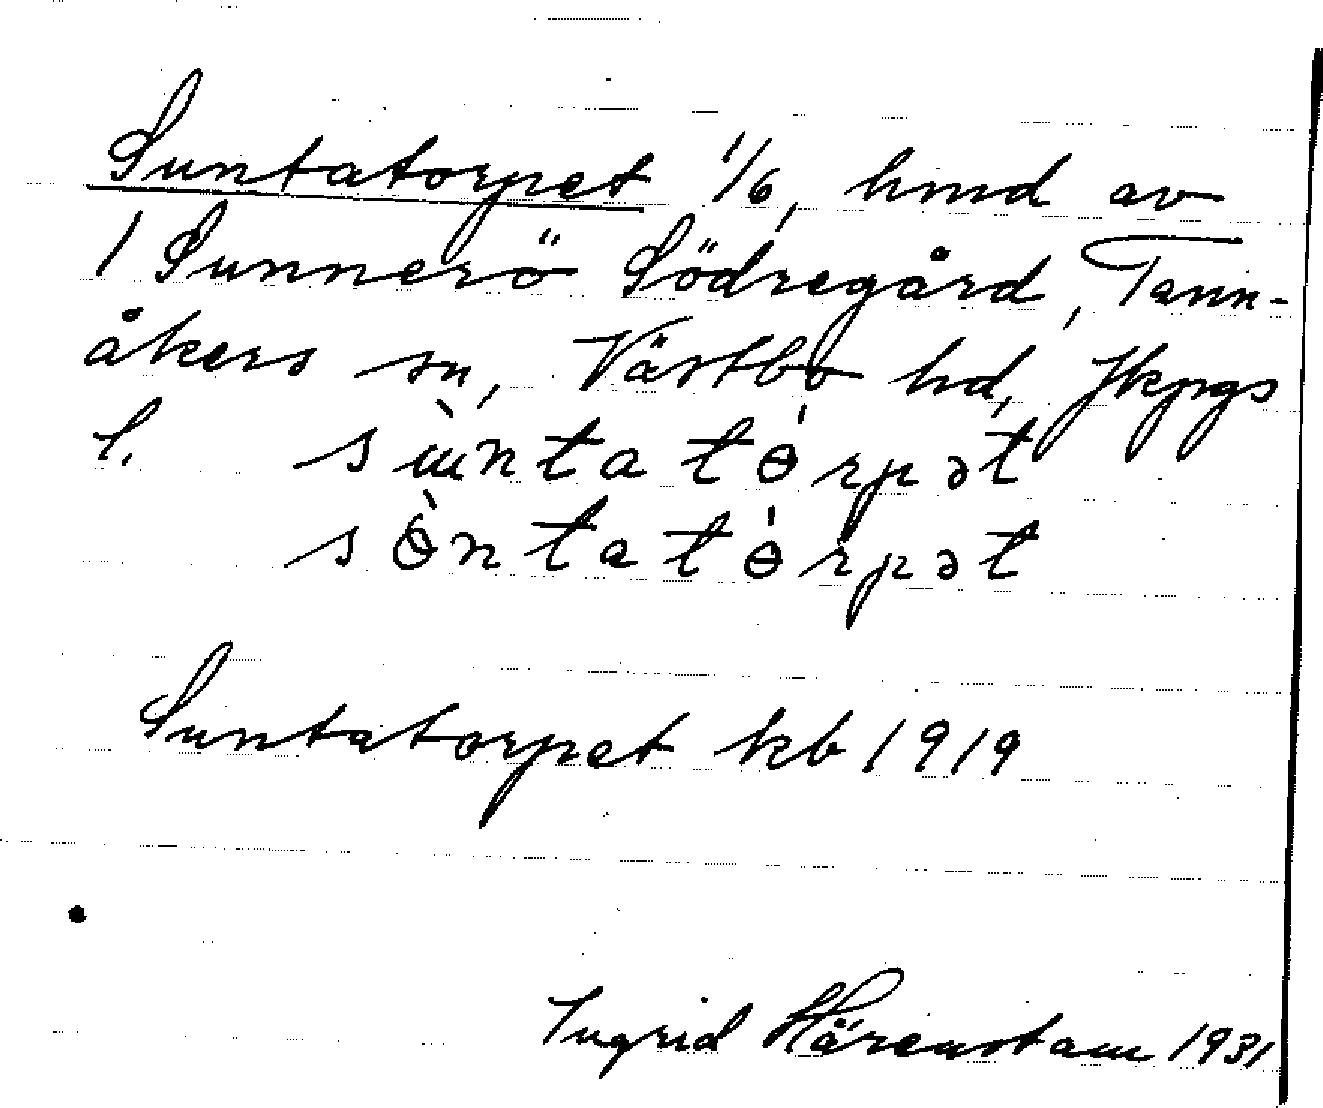 Suntatorpet 1/6, hmd av
1 Sunnerö Södregård, Tann-
åkers sn, Västbo hd, Jkpgs
l. sɯ̀ntatɵ́rpət
sɵ̀ntatɵ́rpət
Suntatorpet kb 1919
Ingrid Härenstam 1931